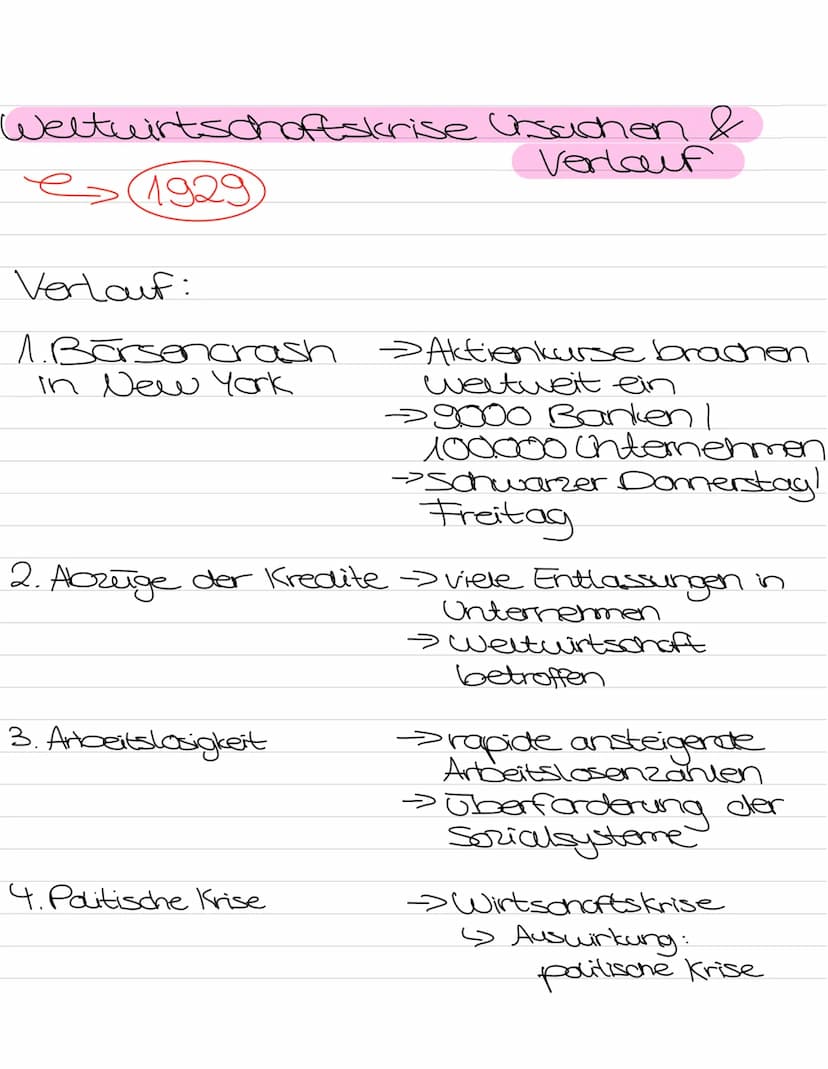 Weltwirtschaftskrise Ursachen &
Verlauf
↪ 1929
Verlauf:
1. Börsencrash → Aktienkurse brachen
in New York weltweit ein
→ 9000 Banken /
100000 Unternehmen
→ Schwarzer Donnerstag/
Freitag
2. Abzüge der Kredite → viele Entlassungen in
Unternehmen
→ Weltwirtschaft
betroffen
3. Arbeitslosigkeit → rapide ansteigende
Arbeitslosenzahlen
→ Überforderung der
Sozialsysteme
4. Politische Krise → Wirtschaftskrise
↳ Auswirkung:
politische Krise